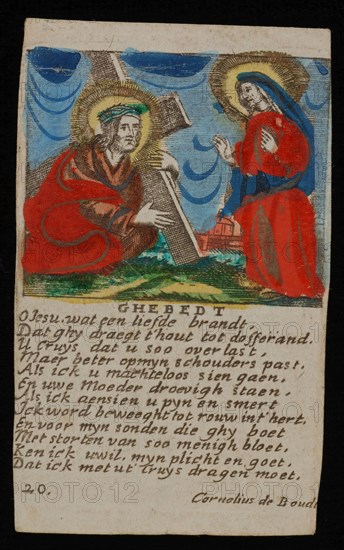 GHEBEDT
O Jesu. wat een liefde brandt.
Dat ghy draegt t'hout tot dofferand.
U Cruys dat u soo overlast.
Maer beter op myn schouders past.
Als ick u machteloos sien gaen.
En uwe Moeder droevigh staen.
Als ick aensien u pyn en smert
Ick word beweeght tot rouw int' hert.
En voor myn sonden die ghy boet
Met storten van soo menigh bloet.
Ken ick uwil. myn plicht en goet.
Dat ick met ut' Cruys dragen moet.
20.
Cornelius de Boudt